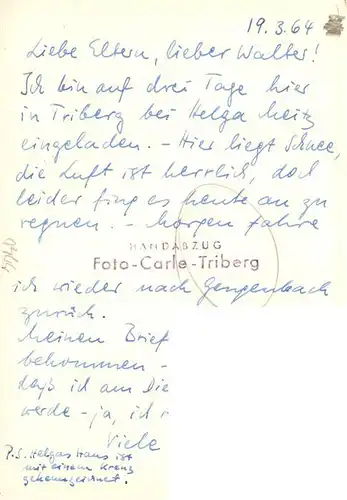 19.3.64
Liebe Eltern, lieber Walter!
Ich bin auf drei Tage hier
in Triberg bei Helga Meitz
eingeladen. – Hier liegt Schnee,
die Luft ist herrlich, doch
leider fing es heute an zu
regnen. – Morgen fahre
HANDABZUG
Foto-Carle-Triberg
ich wieder nach Gengenbach
zurück.
Meinen Brief
bekommen –
daß ich am Die
werde – ja, ich
Viele
P.S. Helgas Haus ist
mit einem Kreuz
gekennzeichnet.